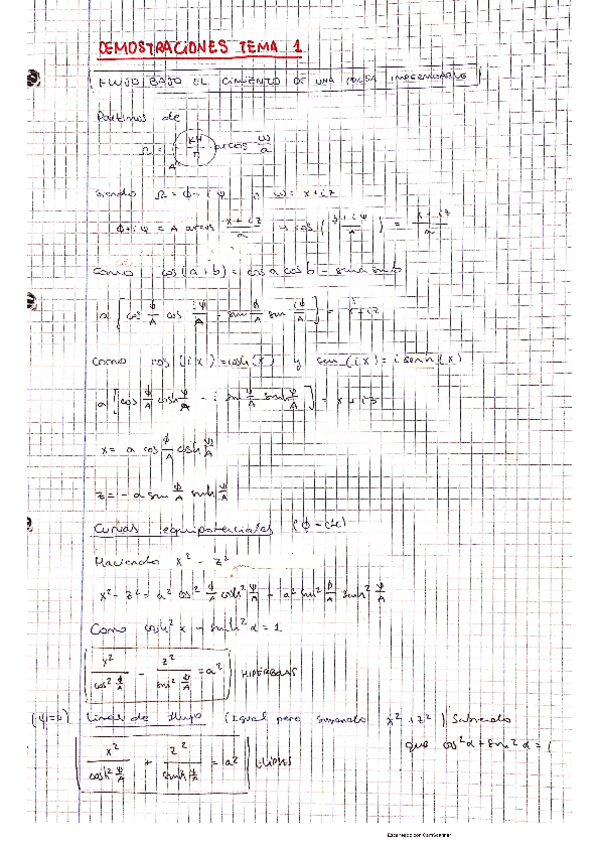 DEMOSTRACIONES TEMA 1
FLUJO BAJO EL CIMIENTO DE UNA PRESA IMPERMEABLE
Partimos de
Ω = - kH/π arcos w/a
A
siendo Ω = ϕ + iψ y w = x + iz
ϕ + iψ = A arcos (x + iz)/a → cos((ϕ + iψ)/A) = (x + iz)/a
Como cos(a+b) = cos a cos b - sin a sin b
a [cos ϕ/A cos iψ/A - sin ϕ/A sin iψ/A] = x + iz
Como cos(ix) = cosh(x) y sin(ix) = i senh(x)
a [cos ϕ/A cosh ψ/A - i sin ϕ/A senh ψ/A] = x + iz
x = a cos ϕ/A cosh ψ/A
z = - a sin ϕ/A senh ψ/A
Curvas equipotenciales (ϕ = cte)
Haciendo x² - z²
x² - z² = a² cos² ϕ/A cosh² ψ/A - a² sin² ϕ/A senh² ψ/A
Como cosh² α - sinh² α = 1
x²/cos² ϕ/A - z²/sin² ϕ/A = a² HIPERBOLAS
Lineas de flujo (Igual pero sumando x² + z²) Sabiendo
que cos² α + sen² α = 1
x²/cosh² ψ/A + z²/senh² ψ/A = a² ELIPSES
Escaneado con CamScanner